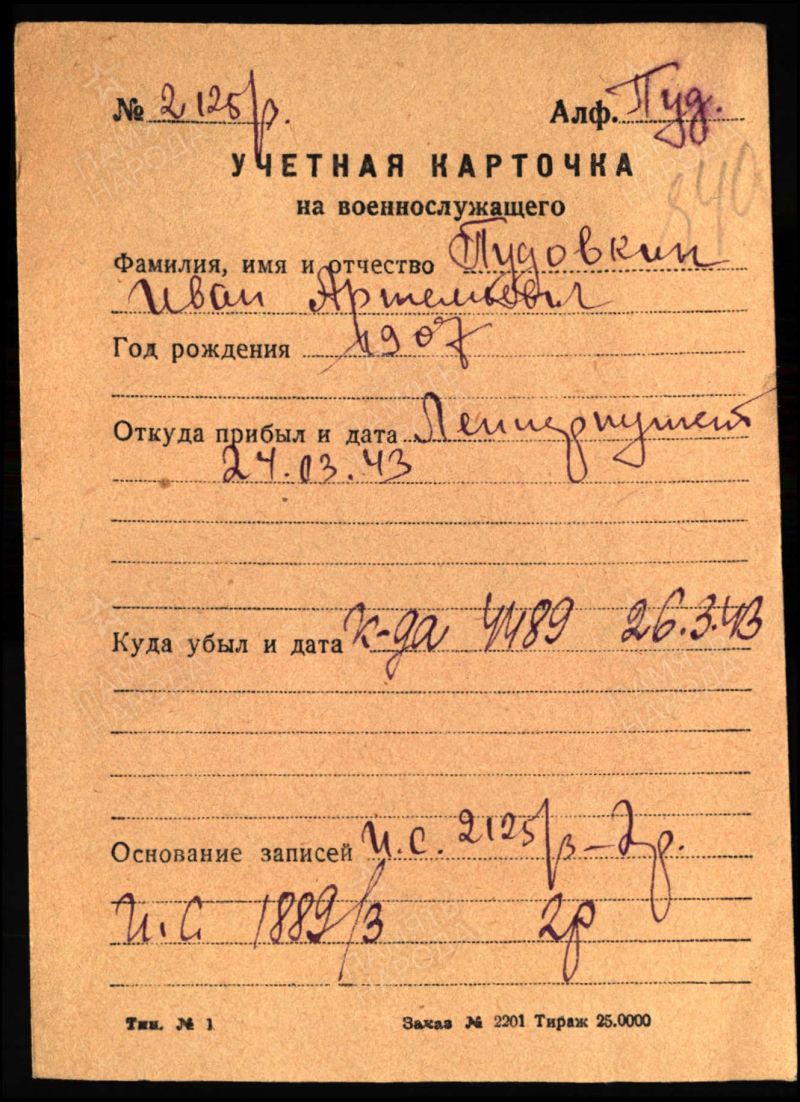 № 2125/р. Алф. Пуд.
УЧЕТНАЯ КАРТОЧКА
на военнослужащего
Фамилия, имя и отчество Пудовкин
Иван Артемьевич
Год рождения 1907
Откуда прибыл и дата
24.03.43
Куда убыл и дата к-да 4489 26.3.43
Основание записей И.С. 2125/р – 2р.
И.С. 1889/з 2р
Тип. № 1 Заказ № 2201 Тираж 25.0000
ПАМЯТЬ
НАРОДА